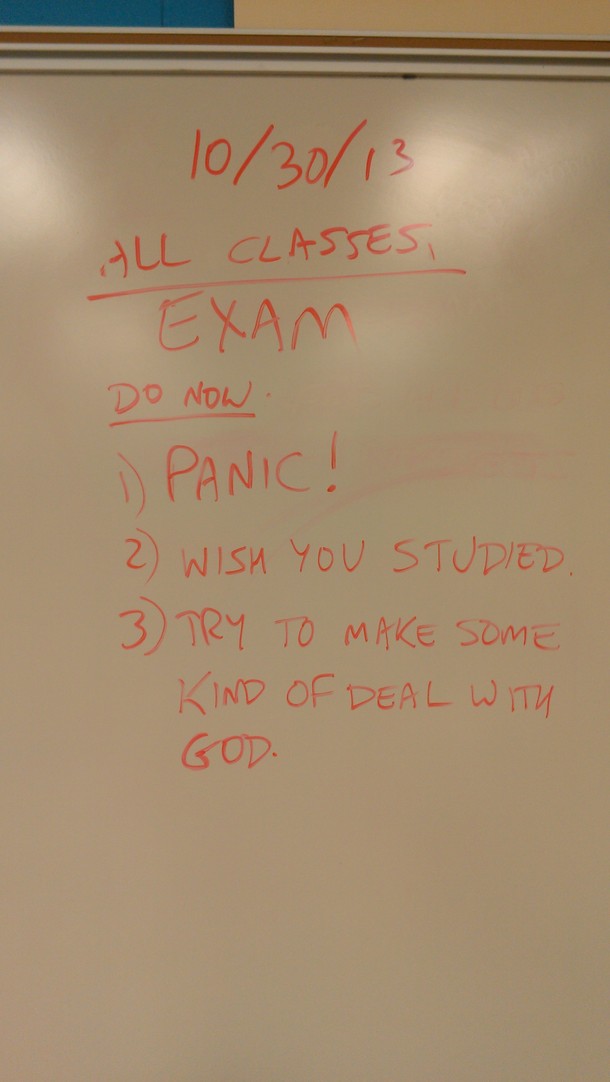 10/30/13
ALL CLASSES.
EXAM
DO NOW.
1) PANIC!
2) WISH YOU STUDIED.
3) TRY TO MAKE SOME
KIND OF DEAL WITH
GOD.